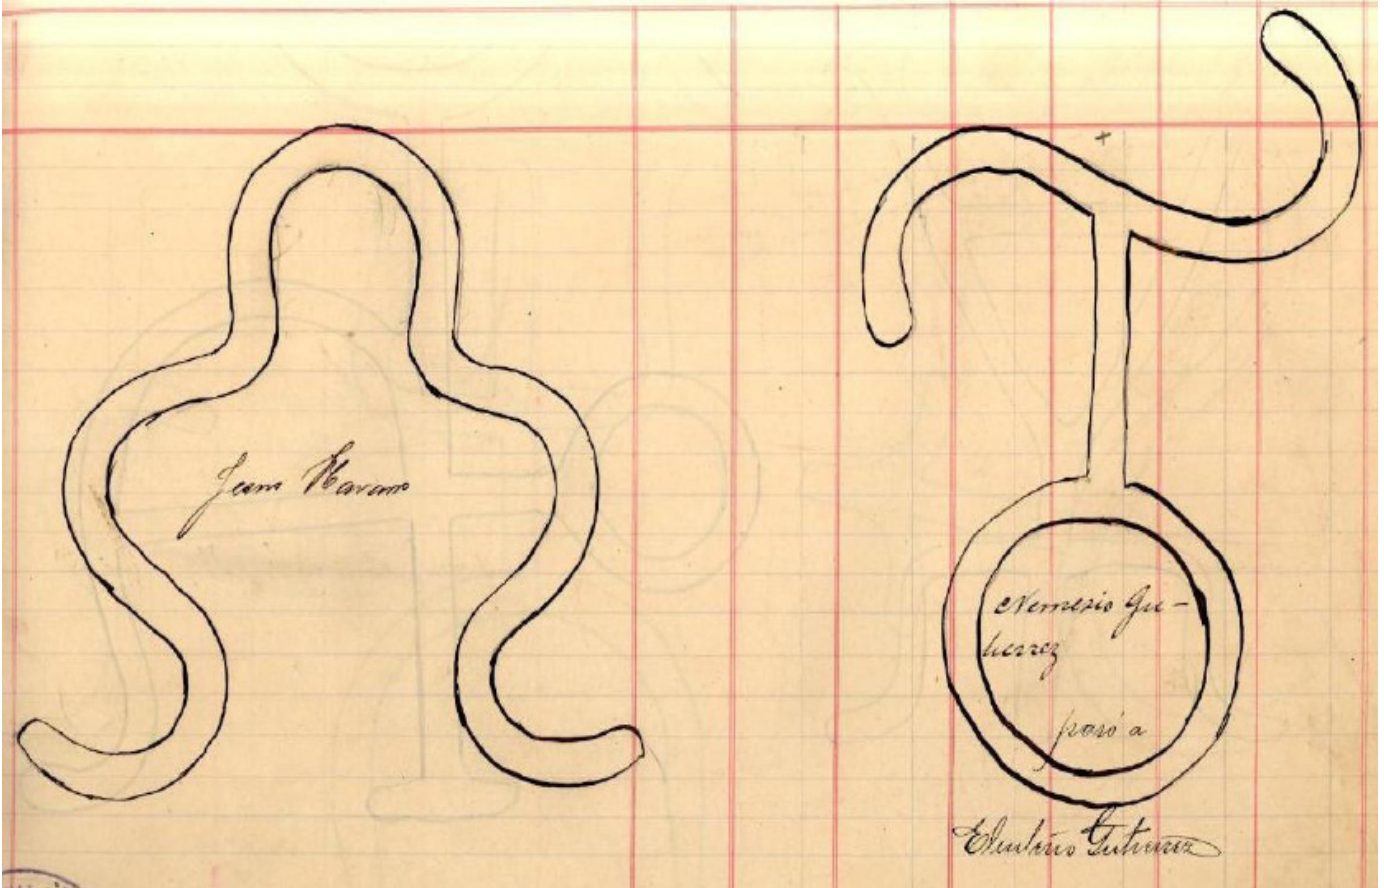 Jesus Navarro
Nemesio Gu-
tierrez
pasó a
Eleuterio Gutierrez